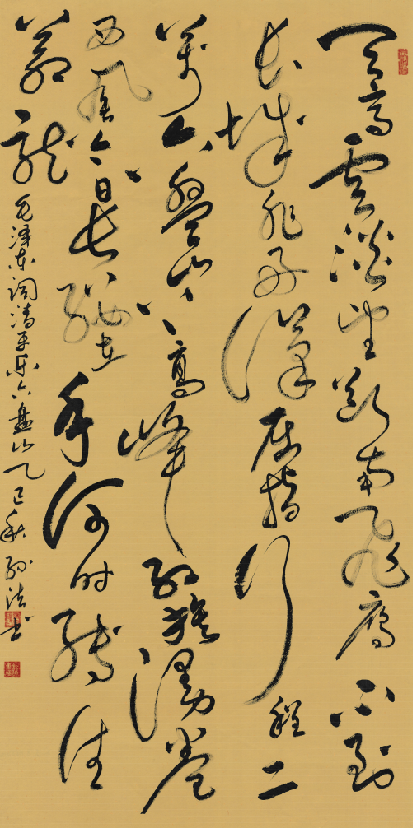 天高雲淡望断南飞雁不到
长城非好漢屈指行程二
萬六盘山上高峰红旗漫卷
西风今日长缨在手何时缚住
苍龙
毛泽东词清平乐六盘山乙巳秋书